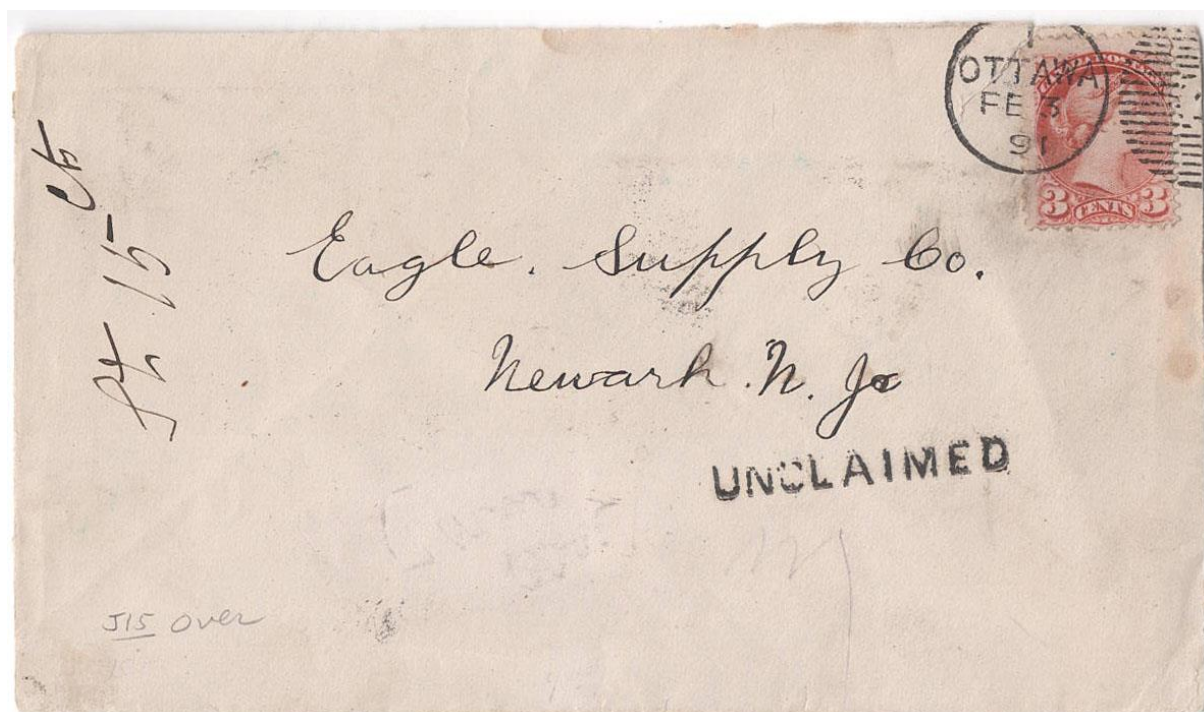 1
OTTAWA
FE 3
91
3 CENTS 3
Eagle. Supply Co.
Newark. N. Je
UNCLAIMED
J15 over